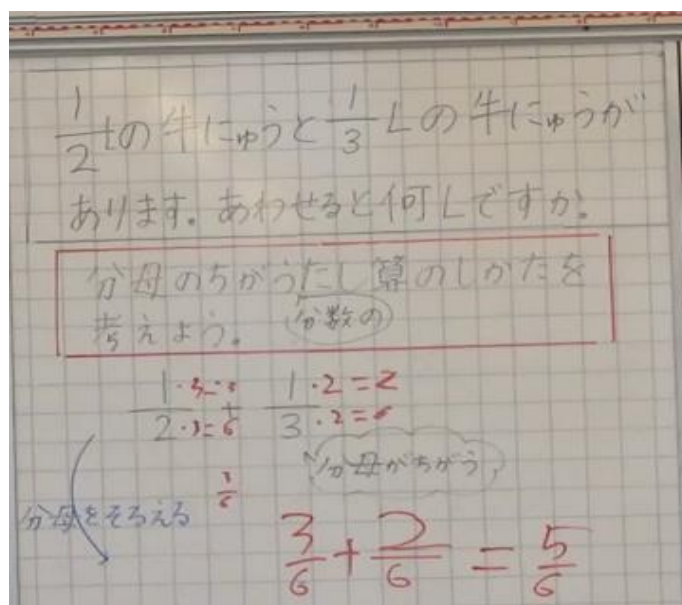 1/2 Lの牛にゅうと 1/3 Lの牛にゅうが
あります。あわせると何Lですか。
分母のちがうたし算のしかたを
考えよう。 分数の
1·3=3 1·2=2
2·3=6 + 3·2=6
分母がちがう
3/6
分母をそろえる
3/6 + 2/6 = 5/6